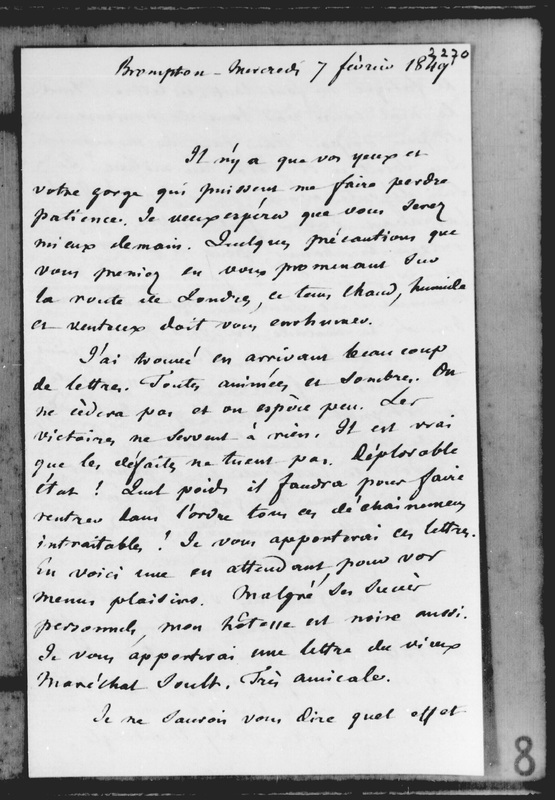 2270
Brompton - Mercredi 7 février 1849
Il n'y a que vos yeux et
votre gorge qui puissent me faire perdre
patience. Je veux espérer que vous serez
mieux demain. Quelques précautions que
vous preniez en vous promenant sur
la route de Londres, ce tems chaud, humide
et venteux doit vous enrhumer.
J'ai trouvé en arrivant beaucoup
de lettres. Toutes animées et sombres. On
ne cèdera pas et on espère peu. Les
victoires ne servent à rien. Il est vrai
que les défaites ne tuent pas. Déplorable
état ! Quel poids il faudra pour faire
rentrer dans l'ordre tous ces déchainemens
intraitables ! Je vous apporterai ces lettres.
En voici une en attendant pour vos
menus plaisirs. Malgré ses succès
personnels, mon hôtesse est noire aussi.
Je vous apporterai une lettre du vieux
Maréchal Soult. Très amicale.
Je ne saurois vous dire quel effet
8